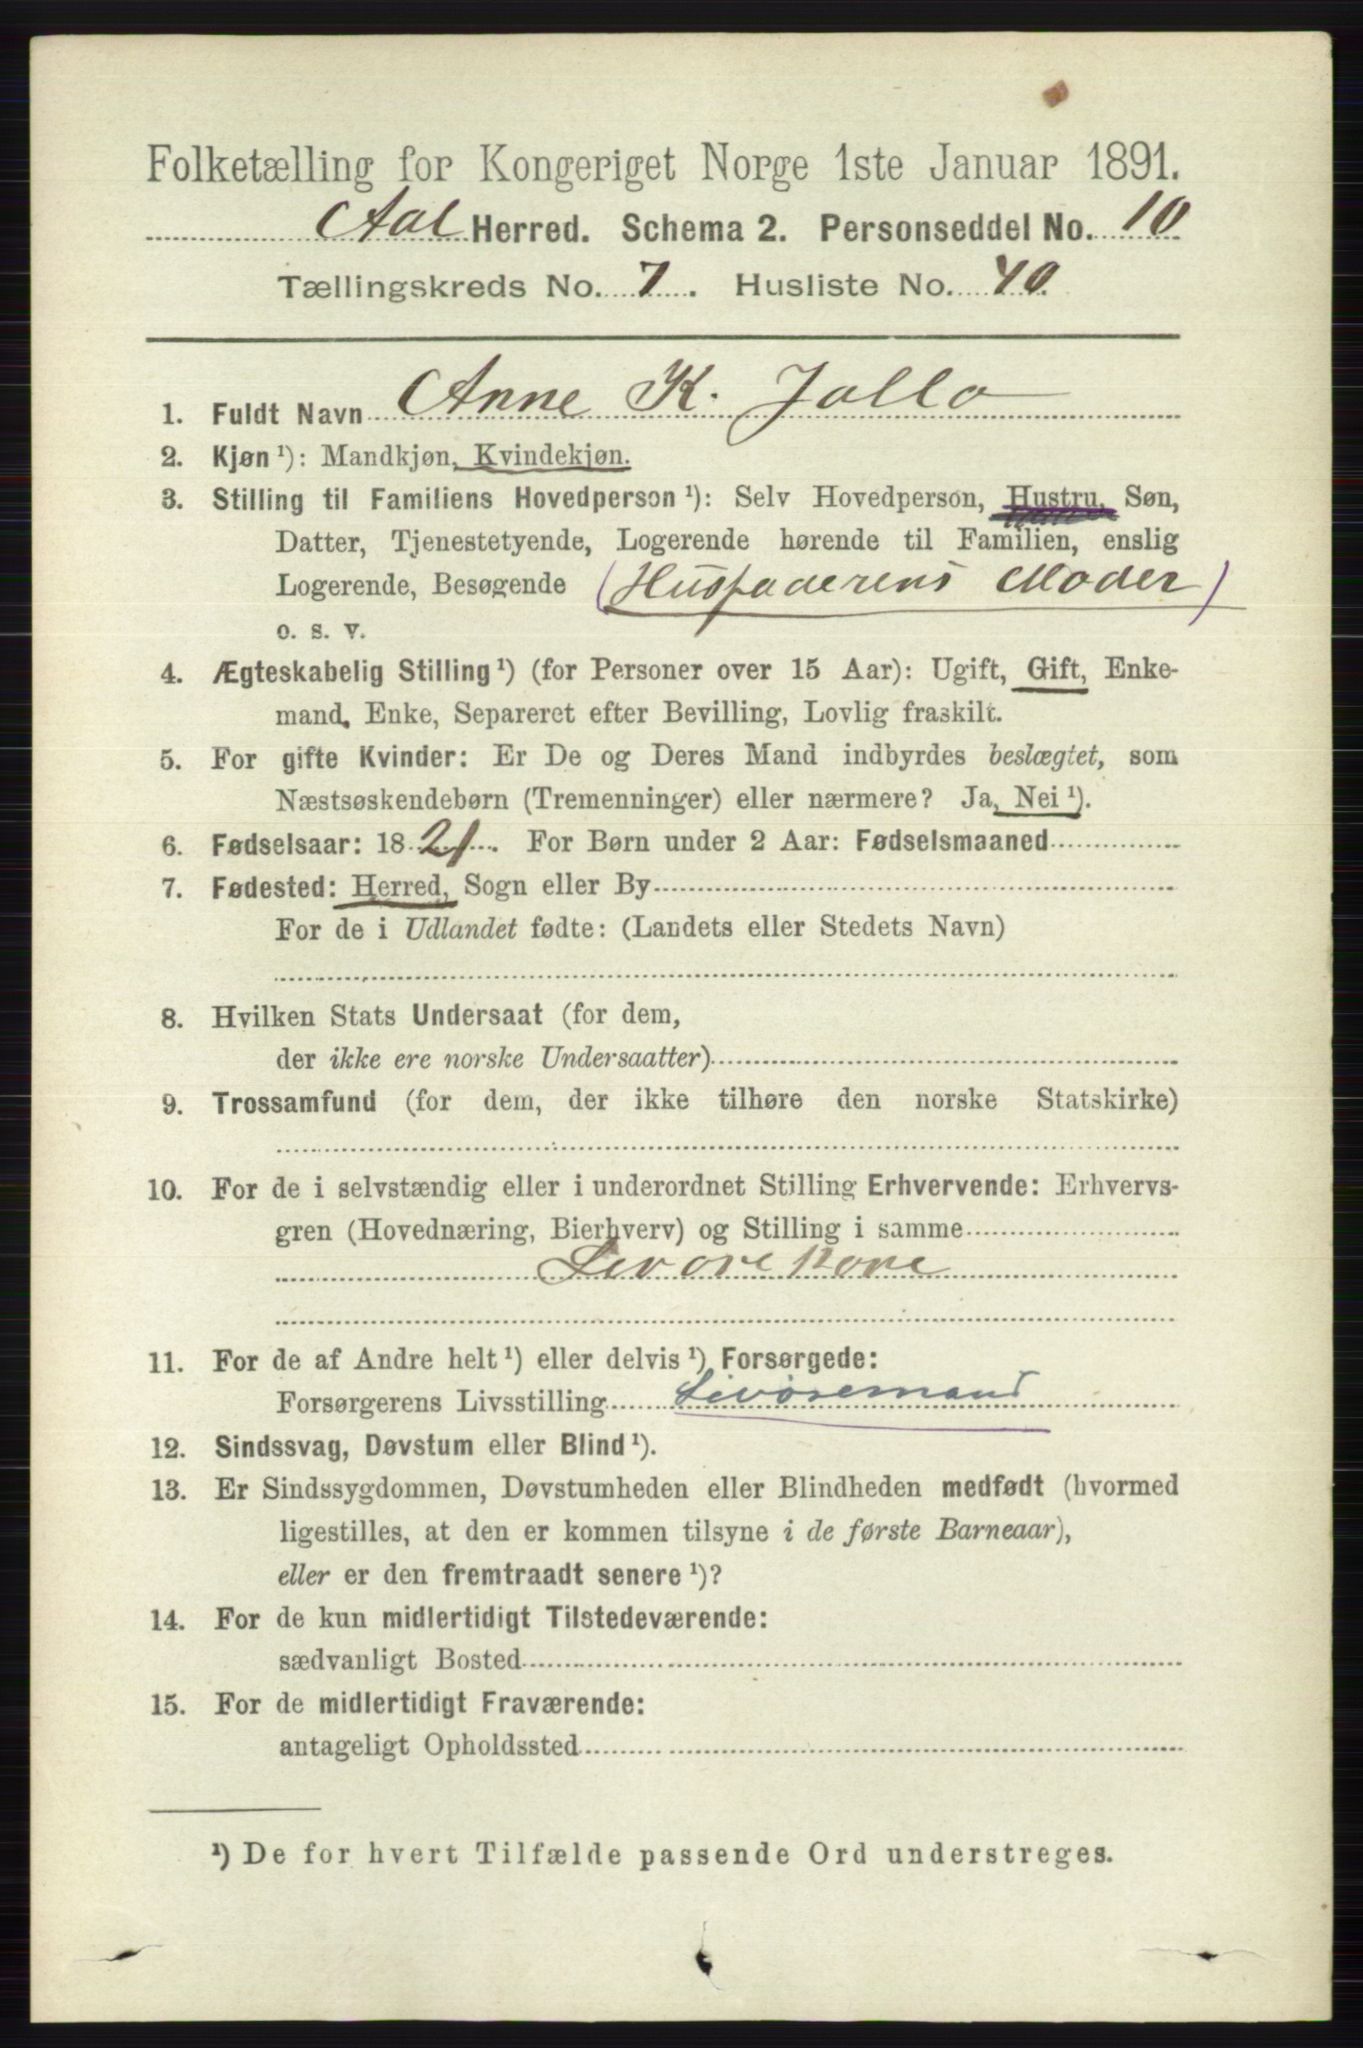 Folketælling for Kongeriget Norge 1ste Januar 1891.
Aal Herred. Schema 2. Personseddel No. 10
Tællingskreds No. 7. Husliste No. 40
1. Fuldt Navn Anne K. Jallo
2. Kjøn ¹): Mandkjøn, Kvindekjøn.
3. Stilling til Familiens Hovedperson ¹): Selv Hovedperson, Hustru, Søn,
Datter, Tjenestetyende, Logerende hørende til Familien, enslig
Logerende, Besøgende (Husfaderens Moder)
o. s. v.
4. Ægteskabelig Stilling ¹) (for Personer over 15 Aar): Ugift, Gift, Enke-
mand, Enke, Separeret efter Bevilling, Lovlig fraskilt.
5. For gifte Kvinder: Er De og Deres Mand indbyrdes beslægtet, som
Næstsøskendebørn (Tremenninger) eller nærmere? Ja, Nei ¹).
6. Fødselsaar: 1821. For Børn under 2 Aar: Fødselsmaaned
7. Fødested: Herred, Sogn eller By
For de i Udlandet fødte: (Landets eller Stedets Navn)
8. Hvilken Stats Undersaat (for dem,
der ikke ere norske Undersaatter)
9. Trossamfund (for dem, der ikke tilhøre den norske Statskirke)
10. For de i selvstændig eller i underordnet Stilling Erhvervende: Erhvervs-
gren (Hovednæring, Bierhverv) og Stilling i samme
Levore Kone
11. For de af Andre helt ¹) eller delvis ¹) Forsørgede:
Forsørgerens Livsstilling Levøremand
12. Sindssvag, Døvstum eller Blind ¹).
13. Er Sindssygdommen, Døvstumheden eller Blindheden medfødt (hvormed
ligestilles, at den er kommen tilsyne i de første Barneaar),
eller er den fremtraadt senere ¹)?
14. For de kun midlertidigt Tilstedeværende:
sædvanligt Bosted
15. For de midlertidigt Fraværende:
antageligt Opholdssted
¹) De for hvert Tilfælde passende Ord understreges.